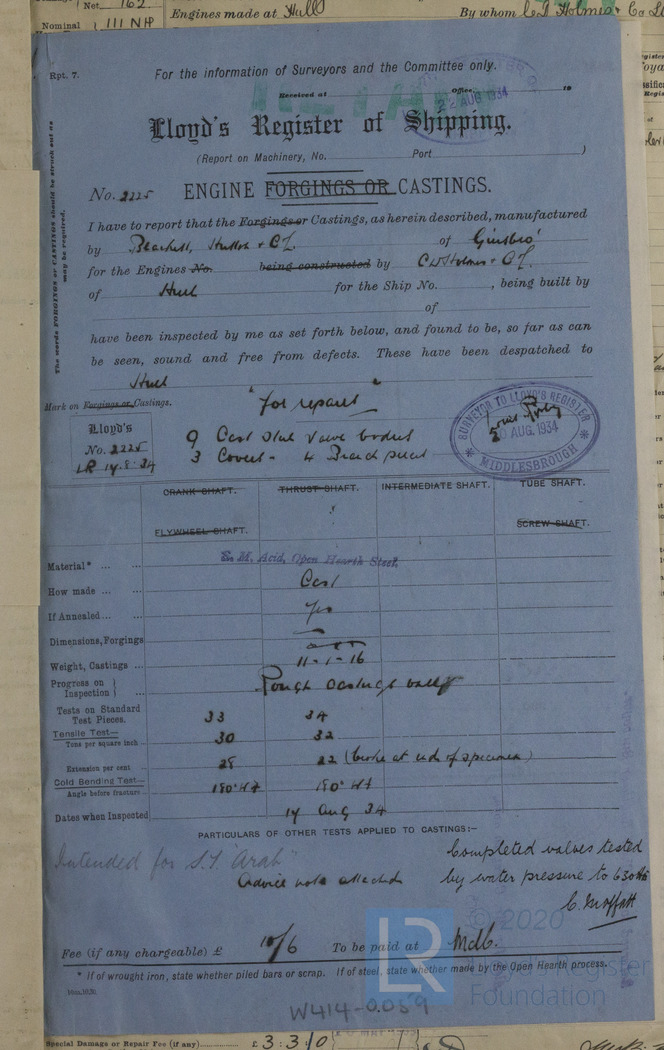 Net 162
Nominal 111 NHP
Engines made at Hull By whom C.D. Holmes & Co
Rpt. 7.
For the information of Surveyors and the Committee only.
Received at Office 19
22 AUG 1934
Lloyd's Register of Shipping.
(Report on Machinery, No. Port )
No. 2225 ENGINE FORGINGS OR CASTINGS.
The words FORGINGS or CASTINGS should be struck out as may be required.
I have to report that the Forgings or Castings, as herein described, manufactured
by of
for the Engines No. being constructed by C D Holmes & Co.
of Hull for the Ship No. , being built by
of
have been inspected by me as set forth below, and found to be, so far as can
be seen, sound and free from defects. These have been despatched to
Hull
Mark on Forgings or Castings.
"for repairs"
Lloyd's
No. 2225
LR 14.8.34
9 Cast steel valve bodies
3 Covers - 4 pieces
SURVEYOR TO LLOYD'S REGISTER
20 AUG. 1934
MIDDLESBROUGH
CRANK SHAFT. THRUST SHAFT. INTERMEDIATE SHAFT. TUBE SHAFT.
FLYWHEEL SHAFT. SCREW SHAFT.
Material* ... ... S. M. Acid, Open Hearth Steel.
How made ... ... Cast
If Annealed ... ... Yes
Dimensions, Forgings
Weight, Castings ... 11-1-16
Progress on Inspection } Rough castings only
Tests on Standard Test Pieces. 33 34
Tensile Test— Tons per square inch 30 32
Extension per cent 28 22 (broke at end of specimen)
Cold Bending Test— Angle before fracture 180°
Dates when Inspected 14 Aug 34
PARTICULARS OF OTHER TESTS APPLIED TO CASTINGS:–
Intended for S.T. "Arab"
Advice note attached
Completed valves tested
by water pressure to 630 lbs
C. Moffatt
Fee (if any chargeable) £ 10/6 To be paid at Mdb.
* If of wrought iron, state whether piled bars or scrap. If of steel, state whether made by the Open Hearth process.
LR
© 2020
Lloyd's Register
Foundation
W414-0059
Special Damage or Repair Fee (if any) £ 3:3:0